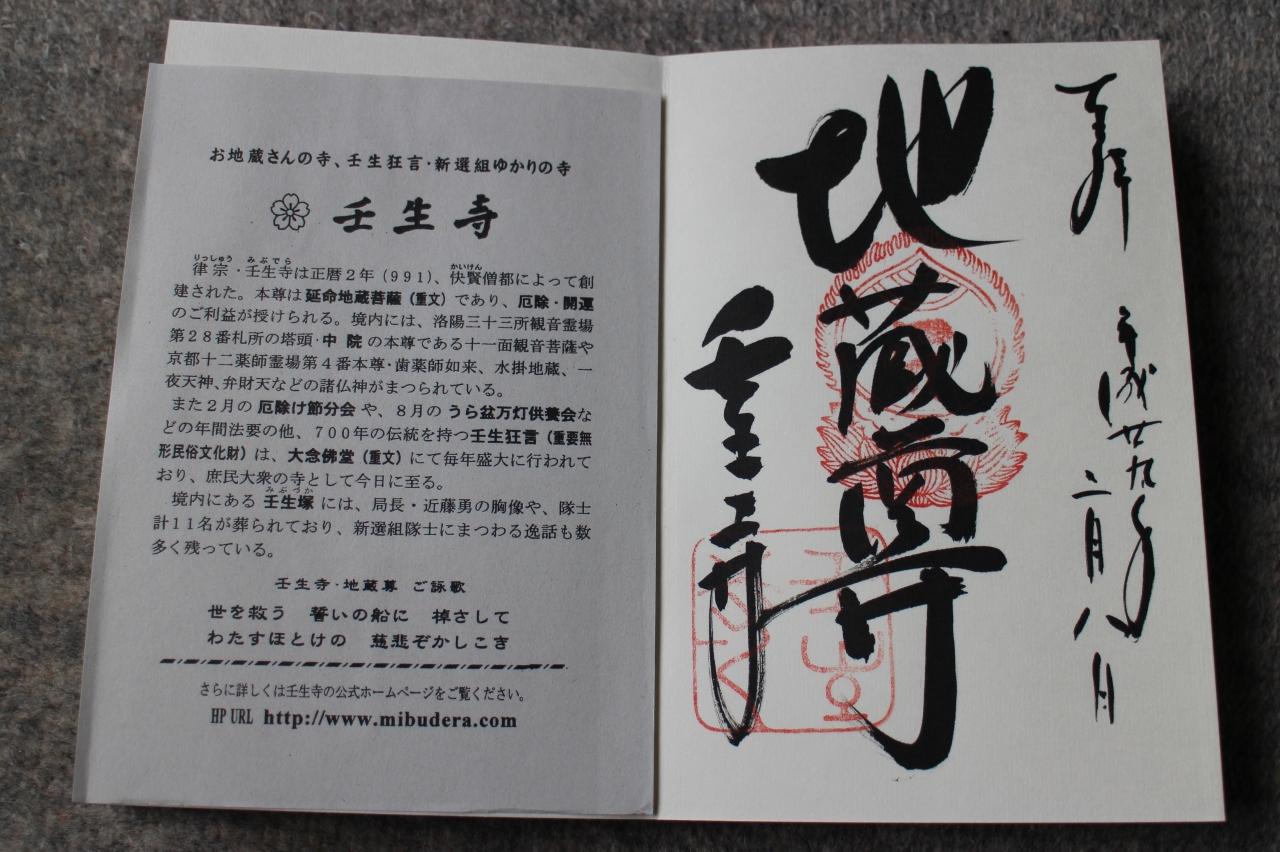 お地蔵さんの寺、壬生狂言・新選組ゆかりの寺
壬生寺
りっしゅう みぶでら かいけん
律宗・壬生寺は正暦2年(991)、快賢僧都によって創
建された。本尊は延命地蔵菩薩(重文)であり、厄除・開運
のご利益が授けられる。境内には、洛陽三十三所観音霊場
第28番札所の塔頭・中院の本尊である十一面観音菩薩や
京都十二薬師霊場第4番本尊・歯薬師如来、水掛地蔵、一
夜天神、弁財天などの諸仏神がまつられている。
また2月の厄除け節分会や、8月のうら盆万灯供養会な
どの年間法要の他、700年の伝統を持つ壬生狂言(重要無
形民俗文化財)は、大念佛堂(重文)にて毎年盛大に行われて
おり、庶民大衆の寺として今日に至る。
みぶづか
境内にある壬生塚には、局長・近藤勇の胸像や、隊士
計11名が葬られており、新選組隊士にまつわる逸話も数
多く残っている。
壬生寺・地蔵尊 ご詠歌
世を救う 誓いの船に 棹さして
わたすほとけの 慈悲ぞかしこき
さらに詳しくは壬生寺の公式ホームページをご覧ください。
HP URL http://www.mibudera.com
奉拝
平成廿九年
二月八日
地蔵尊
壬生寺